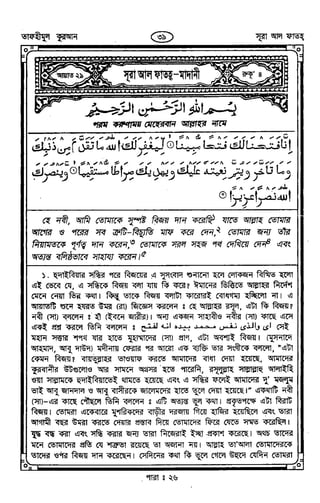 তাফহীমুল কুরআন ৩৯ সূরা আল ফাতহ
আয়াত ২৯ সূরা আল ফাতহ-মাদানী রুকূ' ৪
بِسْمِ اللهِ الرَّحْمٰنِ الرَّحِيْمِ
পরম করুণাময় মেহেরবান আল্লাহর নামে
اِنَّا فَتَحْنَا لَكَ فَتْحًا مُّبِيْنًا ۙ لِّيَغْفِرَ لَكَ اللهُ مَا تَقَدَّمَ مِنْ ذَنْۢبِكَ
وَمَا تَاَخَّرَ وَيُتِمَّ نِعْمَتَهٗ عَلَيْكَ وَيَهْدِيَكَ صِرَاطًا مُّسْتَقِيْمًا ۙ وَّيَنْصُرَكَ
اللهُ نَصْرًا عَزِيْزًا
হে নবী, আমি তোমাকে সুস্পষ্ট বিজয় দান করেছি যাতে আল্লাহ তোমার
আগের ও পরের সব ত্রুটি-বিচ্যুতি মাফ করে দেন, তোমার জন্য তাঁর
নিয়ামতকে পূর্ণত্ব দান করেন, তোমাকে সরল সহজ পথ দেখিয়ে দেন এবং
অত্যন্ত বলিষ্ঠভাবে সাহায্য করেন।
১. হুদাইবিয়ার সন্ধির পরে বিজয়ের এ সুসংবাদ শুনানো হলে লোকজন বিস্মিত হলো
এই ভেবে যে, এ সন্ধিকে বিজয় বলা যায় কি করে? ঈমানের ভিত্তিতে আল্লাহর নির্দেশ
মেনে নেয়া ভিন্ন কথা। কিন্তু তাকে বিজয় বলাটা কারোরই বোধগম্য হচ্ছিলো না। এ
আয়াতটি শুনে হযরত উমর (রা) জিজ্ঞেস করলেন : হে আল্লাহর রসূল, এটা কি বিজয়?
নবী (সা) বললেন : হাঁ (ইবনে জারীর)। অন্য একজন সাহাবীও নবীর (সা) কাছে এসে
একই প্রশ্ন করলে তিনি বললেন : اى والذى نفس محمد بيده انه لفتح সেই
মহান সত্তার শপথ যার হাতে মুহাম্মাদের (সা) প্রাণ, এটা অবশ্যই বিজয়। (মুসনাদে
আহমাদ, আবু দাউদ) মদীনায় ফেরার পর আরো এক ব্যক্তি তার সংগীকে বললো, "এটা
কেমন বিজয়? বায়তুল্লাহর তাওয়াফ করতে আমাদের বাধা দেয়া হয়েছে, আমাদের
কুরবানীর উটগুলোও আর সামনে অগ্রসর হতে পারেনি, রসূলুল্লাহ সাল্লাল্লাহু আলাইহি
ওয়া সাল্লামকে হুদাইবিয়াতেই থামতে হয়েছে এবং এ সন্ধির ফলেই আমাদের দু' মজলুম
ভাই আবু জানদাল ও আবু বাসীরকে জালেমদের হাতে তুলে দেয়া হয়েছে।" একথাটি নবী
(সা)-এর কাছে পৌঁছলে তিনি বললেন : এটি অত্যন্ত ভুল কথা। প্রকৃতপক্ষে এটা বিরাট
বিজয়। তোমরা একেবারে মুশরিকদের বাড়ীর দরজায় গিয়ে হাজির হয়েছিলে এবং তারা
আগামী বছর উমরা করতে দেয়ার প্রস্তাব দিয়ে তোমাদের ফিরে যেতে সম্মত করেছিল।
যুদ্ধ বন্ধ করা এবং সন্ধি করার জন্য তারা নিজেরাই ইচ্ছা প্রকাশ করেছে। অথচ তাদের
মনে তোমাদের প্রতি যে শত্রুতা রয়েছে তা অজানা নয়। আল্লাহ তা'আলা তোমাদেরকে
তাদের ওপর বিজয় দান করেছেন। সেদিনের কথা কি ভুলে গেলে উহুদে যেদিন তোমরা
পারা : ২৬